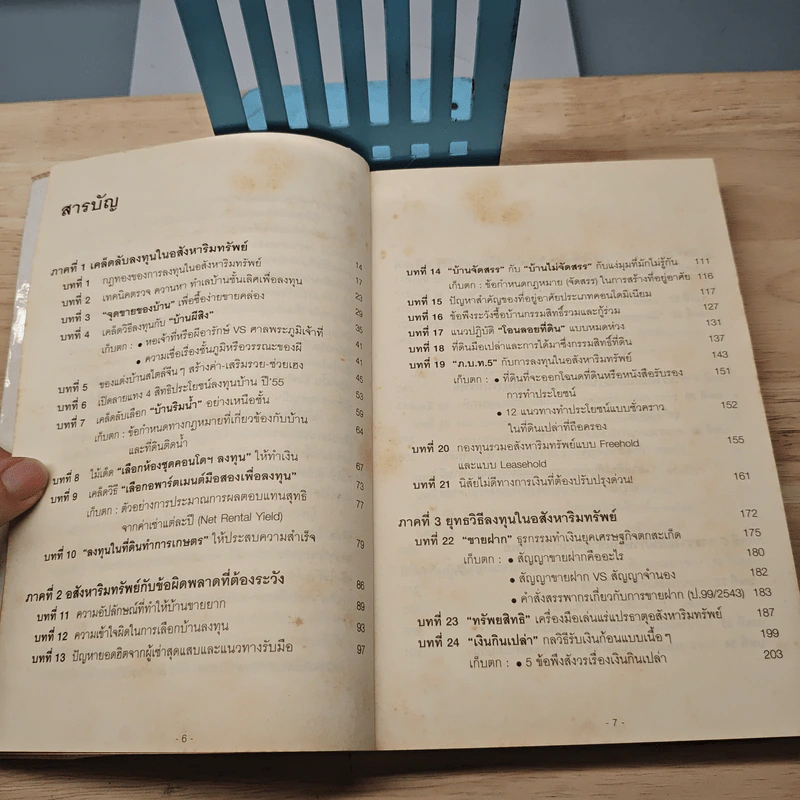 สารบัญ
ภาคที่ 1 เคล็ดลับลงทุนในอสังหาริมทรัพย์ 14
บทที่ 1 กฎทองของการลงทุนในอสังหาริมทรัพย์ 17
บทที่ 2 เทคนิคตรวจ ควานหา ทำเลบ้านชั้นเลิศเพื่อลงทุน 23
บทที่ 3 “จุดขายของบ้าน” เพื่อซื้อง่ายขายคล่อง 29
บทที่ 4 เคล็ดวิธีลงทุนกับ “บ้านผีสิง” 35
เก็บตก : • หอเจ้าที่หรือผีอารักษ์ VS ศาลพระภูมิเจ้าที่ 41
• ความเชื่อเรื่องชั้นภูมิหรือวรรณะของผี 41
บทที่ 5 ของแต่งบ้านสไตล์จีนๆ สร้างค่า-เสริมรวย-ช่วยเฮง 45
บทที่ 6 เปิดลายแทง 4 สิทธิประโยชน์ลงทุนบ้าน ปี'55 53
บทที่ 7 เคล็ดลับเลือก “บ้านริมน้ำ” อย่างเหนือชั้น 59
เก็บตก : ข้อกำหนดทางกฎหมายที่เกี่ยวข้องกับบ้าน 64
และที่ดินติดน้ำ
บทที่ 8 ไม้เด็ด “เลือกห้องชุดคอนโดฯ ลงทุน” ให้ทำเงิน 67
บทที่ 9 เคล็ดวิธี “เลือกอพาร์ตเมนต์มือสองเพื่อลงทุน” 73
เก็บตก : ตัวอย่างการประมาณการผลตอบแทนสุทธิ 77
จากค่าเช่าแต่ละปี (Net Rental Yield)
บทที่ 10 “ลงทุนในที่ดินทำการเกษตร” ให้ประสบความสำเร็จ 79
ภาคที่ 2 อสังหาริมทรัพย์กับข้อผิดพลาดที่ต้องระวัง 86
บทที่ 11 ความอัปลักษณ์ที่ทำให้บ้านขายยาก 89
บทที่ 12 ความเข้าใจผิดในการเลือกบ้านลงทุน 93
บทที่ 13 ปัญหายอดฮิตจากผู้เช่าสุดแสบและแนวทางรับมือ 97
- 6 -
บทที่ 14 “บ้านจัดสรร” กับ “บ้านไม่จัดสรร” กับแง่มุมที่มักไม่รู้กัน 111
เก็บตก : ข้อกำหนดกฎหมาย (จัดสรร) ในการสร้างที่อยู่อาศัย 116
บทที่ 15 ปัญหาสำคัญของที่อยู่อาศัยประเภทคอนโดมิเนียม 117
บทที่ 16 ข้อพึงระวังซื้อบ้านกรรมสิทธิ์รวมและกู้ร่วม 127
บทที่ 17 แนวปฏิบัติ “โอนลอยที่ดิน” แบบหมดห่วง 131
บทที่ 18 ที่ดินมือเปล่าและการได้มาซึ่งกรรมสิทธิ์ที่ดิน 137
บทที่ 19 “ภ.บ.ท.5” กับการลงทุนในอสังหาริมทรัพย์ 143
เก็บตก : • ที่ดินที่จะออกโฉนดที่ดินหรือหนังสือรับรอง 151
การทำประโยชน์
• 12 แนวทางทำประโยชน์แบบชั่วคราว 152
ในที่ดินเปล่าที่ถือครอง
บทที่ 20 กองทุนรวมอสังหาริมทรัพย์แบบ Freehold 155
และแบบ Leasehold
บทที่ 21 นิสัยไม่ดีทางการเงินที่ต้องปรับปรุงด่วน! 161
ภาคที่ 3 ยุทธวิธีลงทุนในอสังหาริมทรัพย์ 172
บทที่ 22 “ขายฝาก” ธุรกรรมทำเงินยุคเศรษฐกิจตกสะเก็ด 175
เก็บตก : • สัญญาขายฝากคืออะไร 180
• สัญญาขายฝาก VS สัญญาจำนอง 182
• คำสั่งสรรพากรเกี่ยวกับการขายฝาก (ป.99/2543) 183
บทที่ 23 “ทรัพยสิทธิ” เครื่องมือเล่นแร่แปรธาตุอสังหาริมทรัพย์ 187
บทที่ 24 “เงินกินเปล่า” กลวิธีรับเงินก้อนแบบเนื้อๆ 199
เก็บตก : • 5 ข้อพึงสังวรเรื่องเงินกินเปล่า 203
- 7 -